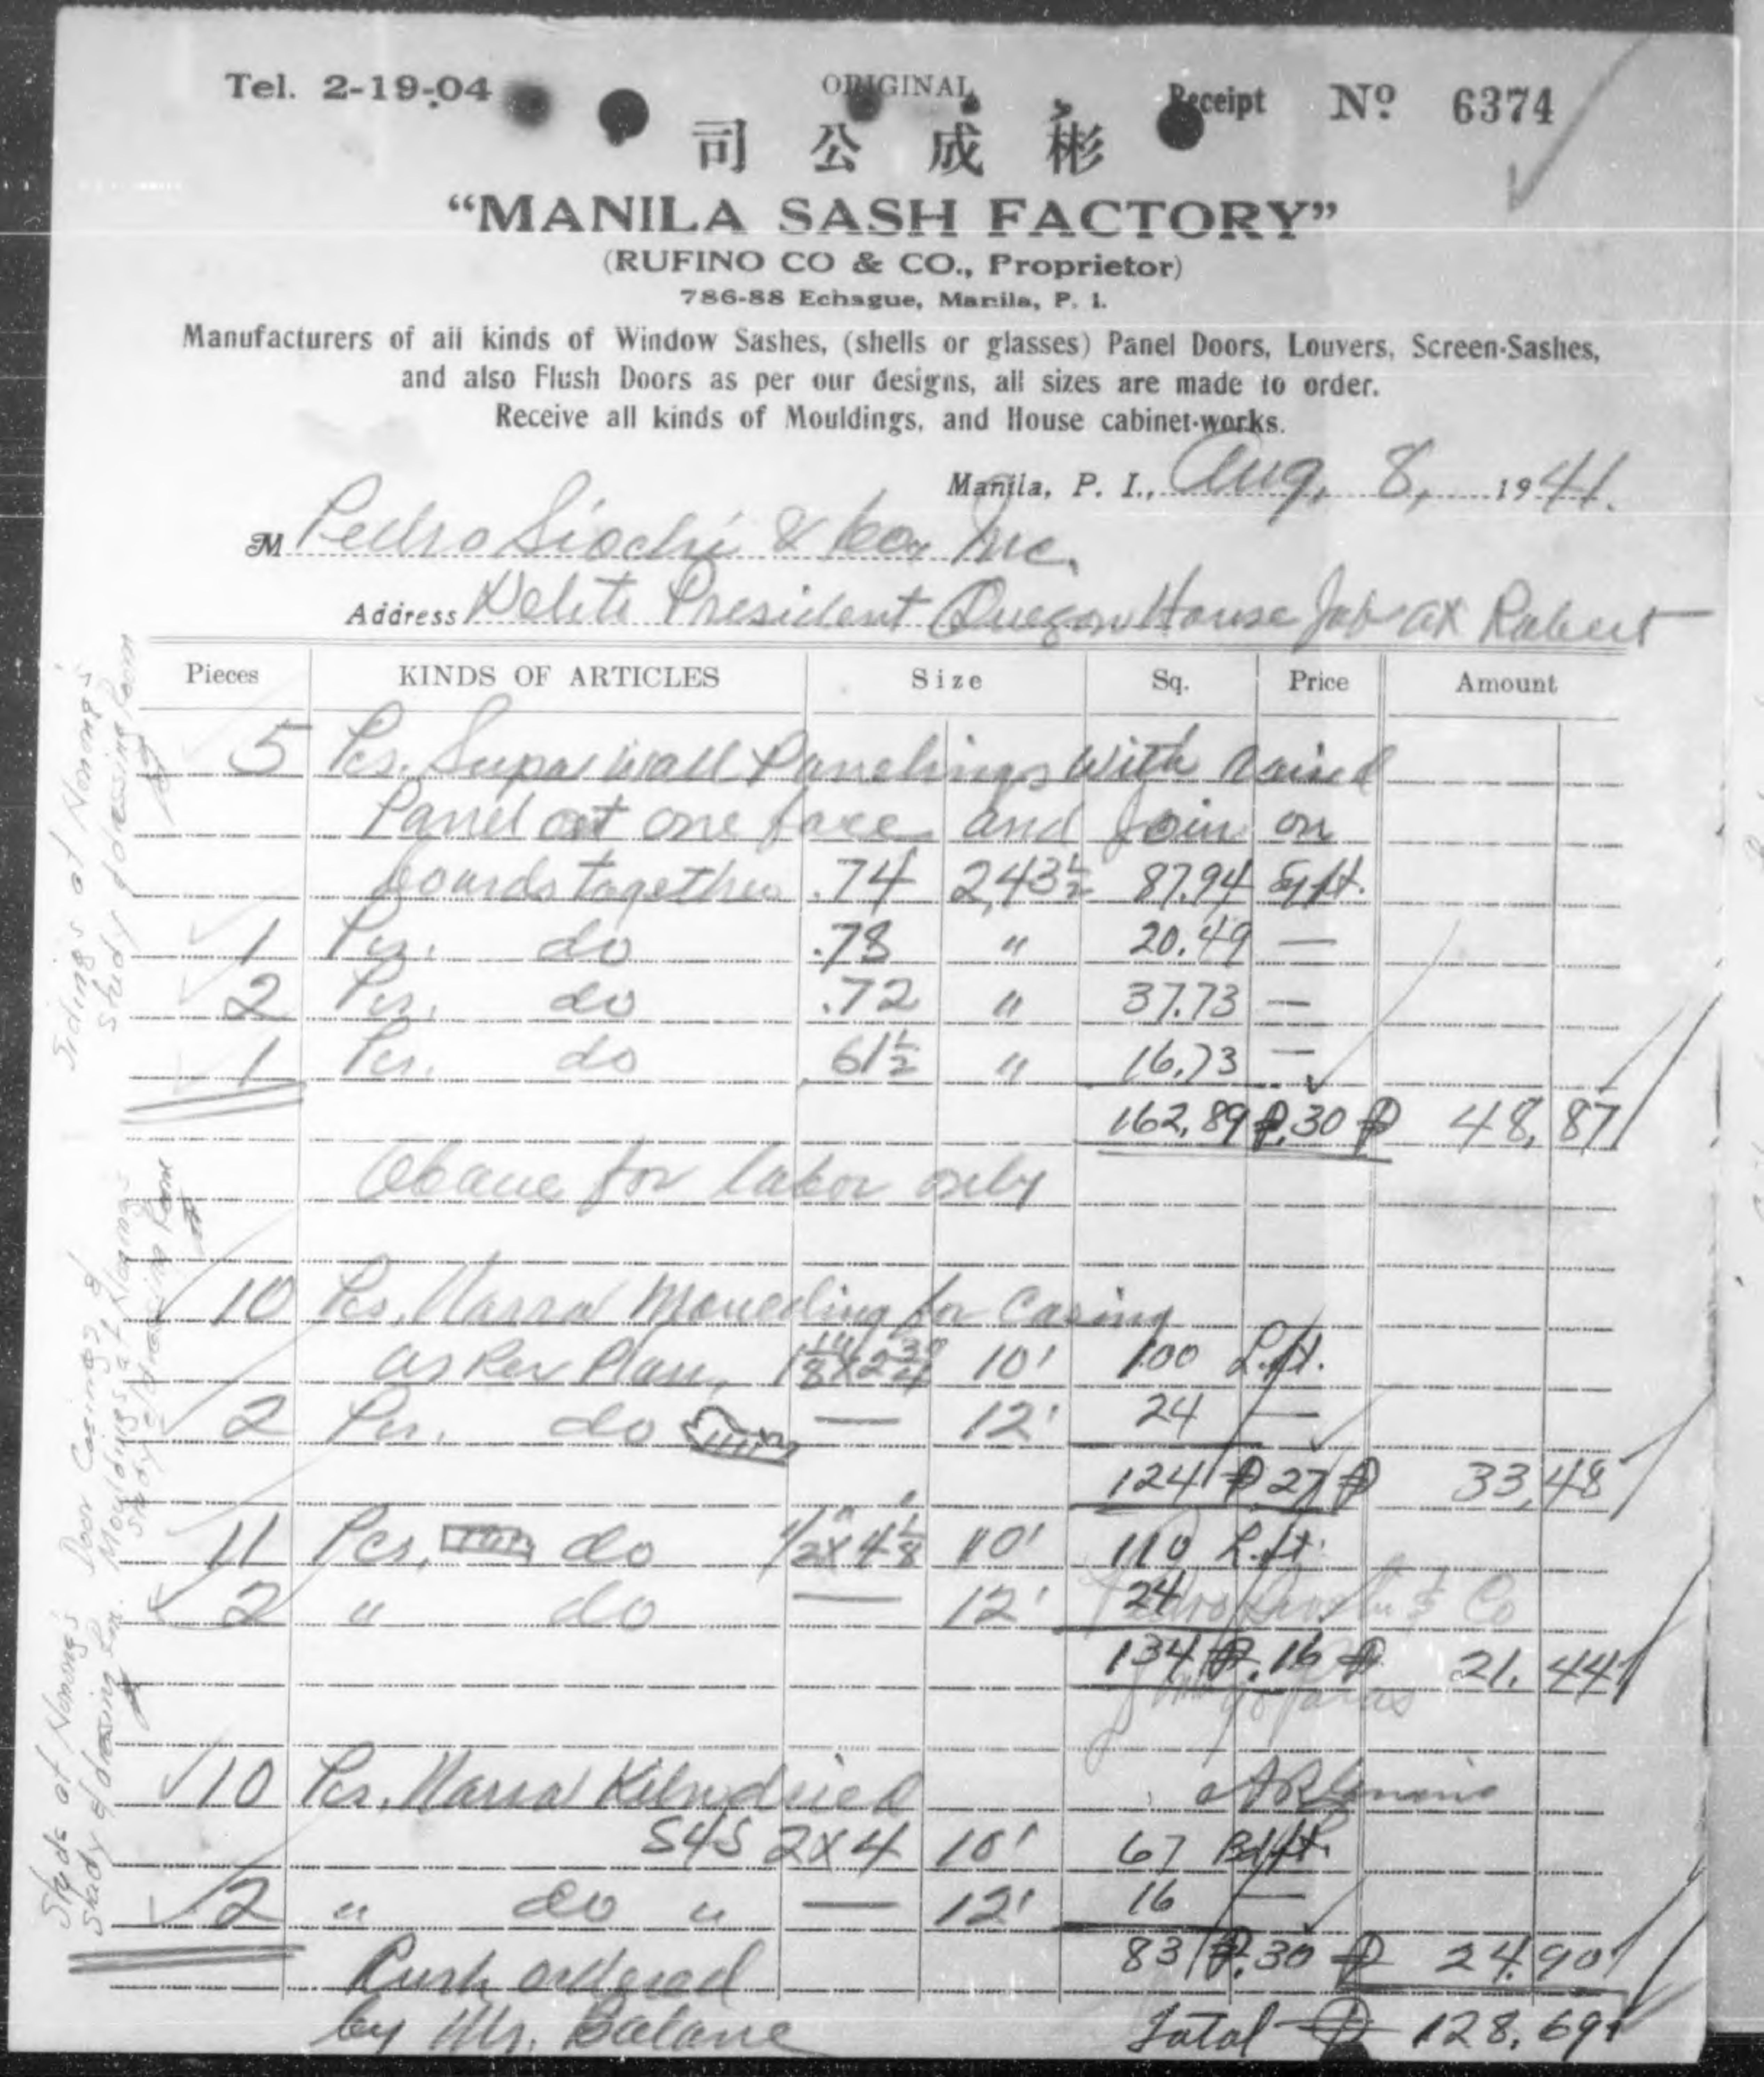 Tel. 2-19-04
ORIGINAL
Receipt Nº 6374
司公成彬
“MANILA SASH FACTORY”
(RUFINO CO & CO., Proprietor)
786-88 Echague, Manila, P. I.
Manufacturers of all kinds of Window Sashes, (shells or glasses) Panel Doors, Louvers, Screen-Sashes,
and also Flush Doors as per our designs, all sizes are made to order.
Receive all kinds of Mouldings, and House cabinet-works.
Manila, P. I., Aug. 8, 1941.
M Pedro Siochi & Co. Inc.
Address President Quezon House Job at Robert
Pieces KINDS OF ARTICLES Size Sq. Price Amount
5 Pcs. Supa wall Panelings with raised
Panel at one face and Join on
boards together .74 2,43½ 87.94 Sq ft.
1 Pcs. do .78 " 20.49 —
2 Pcs. do .72 " 37.73 —
1 Pcs. do 61½ " 16.73 —
162,89 ₱.30 ₱ 48,87
Above for labor only
10 Pcs. Narra Moulding for Casing
as Per Plan, 10' 100 L.ft.
2 Pcs. do — 12' 24 —
124 ₱.27 ₱ 33,48
11 Pcs, do 1/2 x 4 1/8 10' 110 L.ft.
2 " do — 12' 24
134 ₱.16 ₱ 21.44
10 Pcs. Narra Kilndried
S4S 2x4 10' 67 Bd ft.
2 " do " — 12' 16 —
83 ₱.30 ₱ 24.90
Rush ordered
by Mr. Balane Total ₱ 128.69
Sidings at Nonong's
Study & dressing Room
Door Casings &
Mouldings at Nonong's
Study & dressing Room
Studs at Nonong's
Study & dressing Rm.